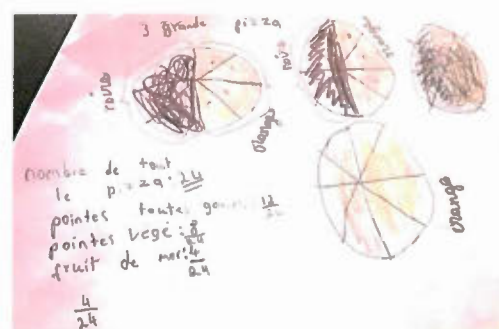 3 grande pizza
noire
noire
orange
orange
nombre de tout
le pizza: 24
pointes toute garnie: 12/24
pointes vege: 8/24
fruit de mer: 4/24
4/24